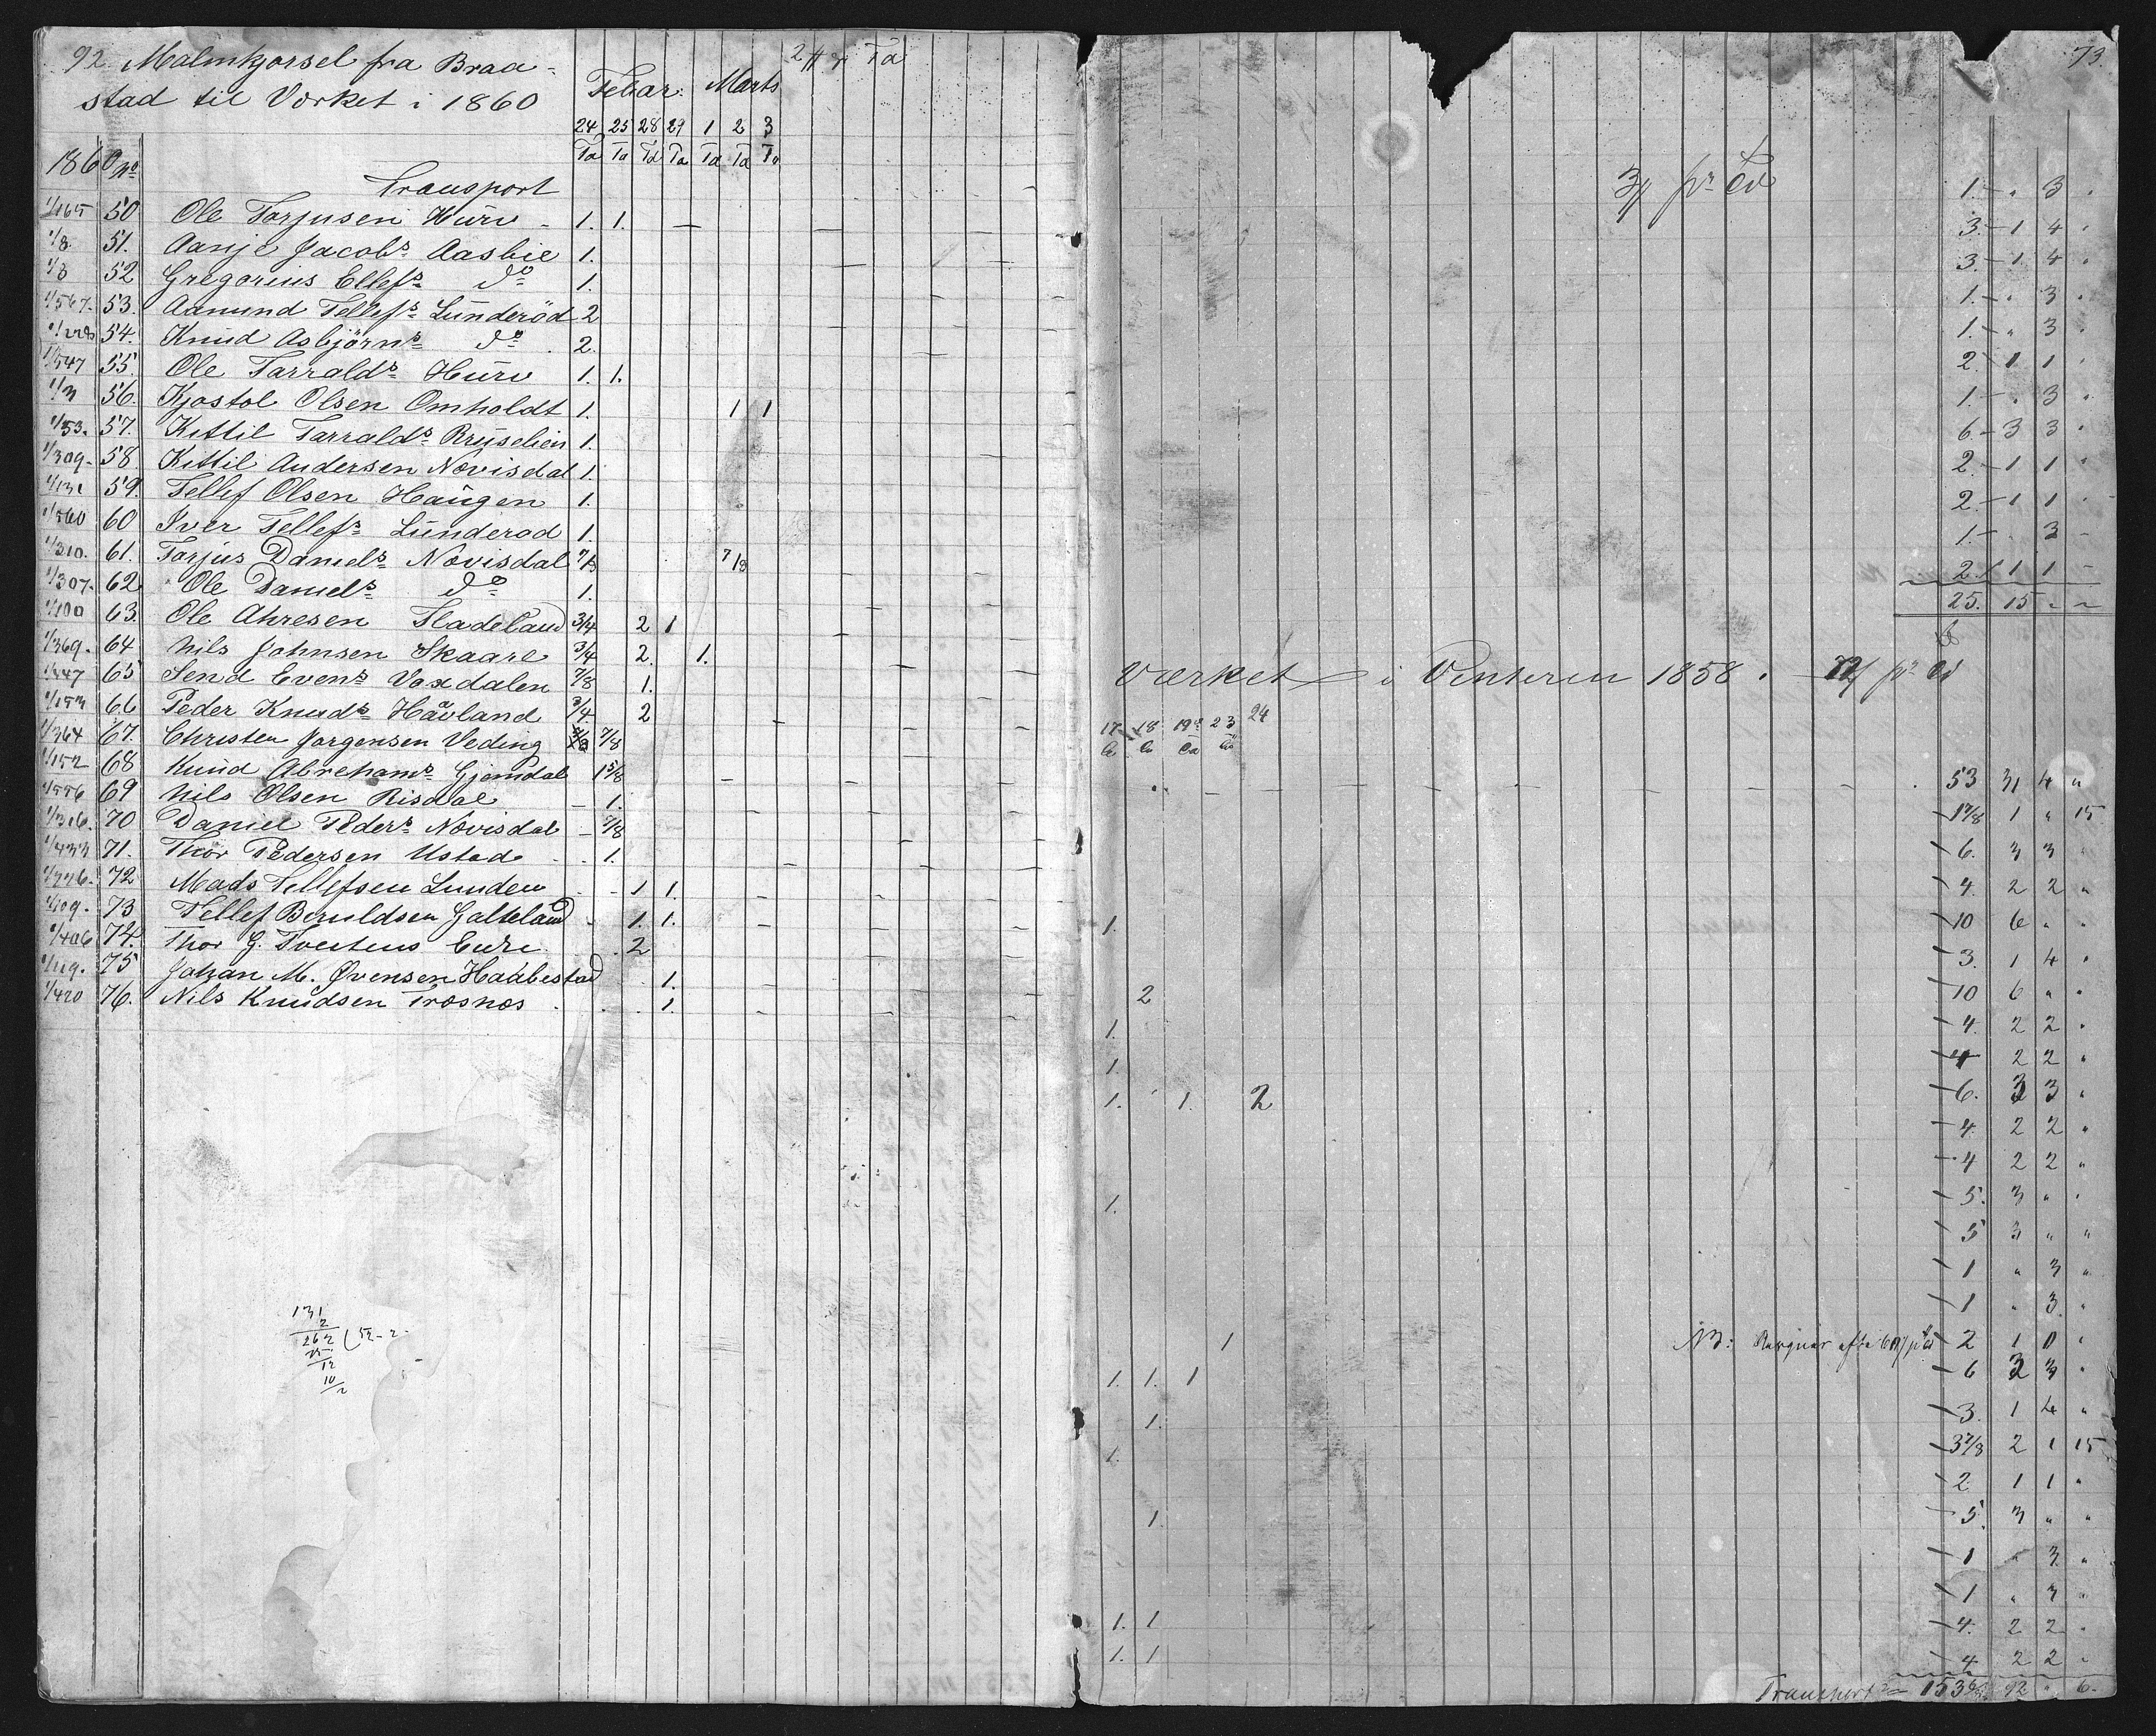 92 Malmkjørsel fra Braa-
stad til Værket i 1860
Febar. Marts
24 25 28 29 1 2 3
Tø Tø Tø Tø Tø Tø Tø
1860 No
Transport
1/165 50 Ole Tarjusen Hurv 1. 1.
1/8 51. Aanje Jacobs. Aasbie 1.
1/8 52 Gregorius Ellefs. do 1.
1/567. 53. Aanund Tellefs. Lunderöd 2
54. Knud Asbjörns. do 2.
1/547 55. Ole Tarralds. Hurv 1. 1.
1/3 56. Kjøstol Olsen Omholdt 1. 1 1
1/53. 57. Kittil Tarralds. 1.
1/309. 58. Kittil Andersen Nævisdal 1.
1/131 59. Tellef Olsen Haugen 1.
1/560 60 Iver Tellefs. Lunderød 1.
1/310. 61. Tarjus Daniels. Nævisdal 7/8 7/8
1/307. 62 Ole Daniels. do 1.
1/100 63. Ole Ahresen Fladeland 3/4 2 1
1/369. 64 Nils Johnsen Skaare 3/4 2. 1.
1/447 65 Send Evens. Vaxdalen 7/8 1.
1/153 66 Peder Knuds. Håvland 3/4. 2
1/364 67. Christen Jørgensen Veding 7/8
1/152 68 Knud Abrehams. Gjemdal 1 5/8
1/556 69 Nils Olsen Risdal 1.
1/316. 70 Daniel Peders. Nævisdal 7/8
1/433 71. Thor Pedersen Ustad 1.
72 Mads Tellefsen Lunden 1 1.
1/109. 73 Tellef Beruldsen Galteland 1. 1.
1/406 74. Thor G. Tveitens Eure 2
75 Johan M. Ovensen Haabestad 1.
1/420 76. Nils Knudsen Træsnæs 1.
131
2
262 ( 52-2.
25
12
10
2
73.
3 pr
1. - " 3 "
3. - 1 4 "
3. - 1 4 "
1. - " 3 "
1. - " 3 "
2. - 1 1 "
1. - " 3 "
6 - 3 3 "
2. - 1 1 "
2. - 1 1 "
1. - 3 -
2. 1 1 -
25. 15 " "
Værket i Vinteren 1858. pr
17 18 19 23 24
53 31 4 "
1 7/8 1 " 15
6. 3 3
4. 2 2 "
1. 10 6 " "
3. 1 4 "
2 10 6 " "
1. 4. 2 2 "
1. 4 2 2 "
1. 1. 2 6. 3 3 "
4. 2 2 "
4 2 2 "
1. 5. 3 " "
5 3 " "
1 " 3 "
1 " 3. "
1 NB: 2 1 0 "
1. 1. 1 6 3 3 "
1. 3. 1 4 "
1. 3 7/8 2 1 15
2 1 1 "
1. 5. 3 " "
1 " 3. "
1 " 3 "
1. 1 4. 2 2 "
1. 1 4 2 2 "
Transport 153 92 " 6.